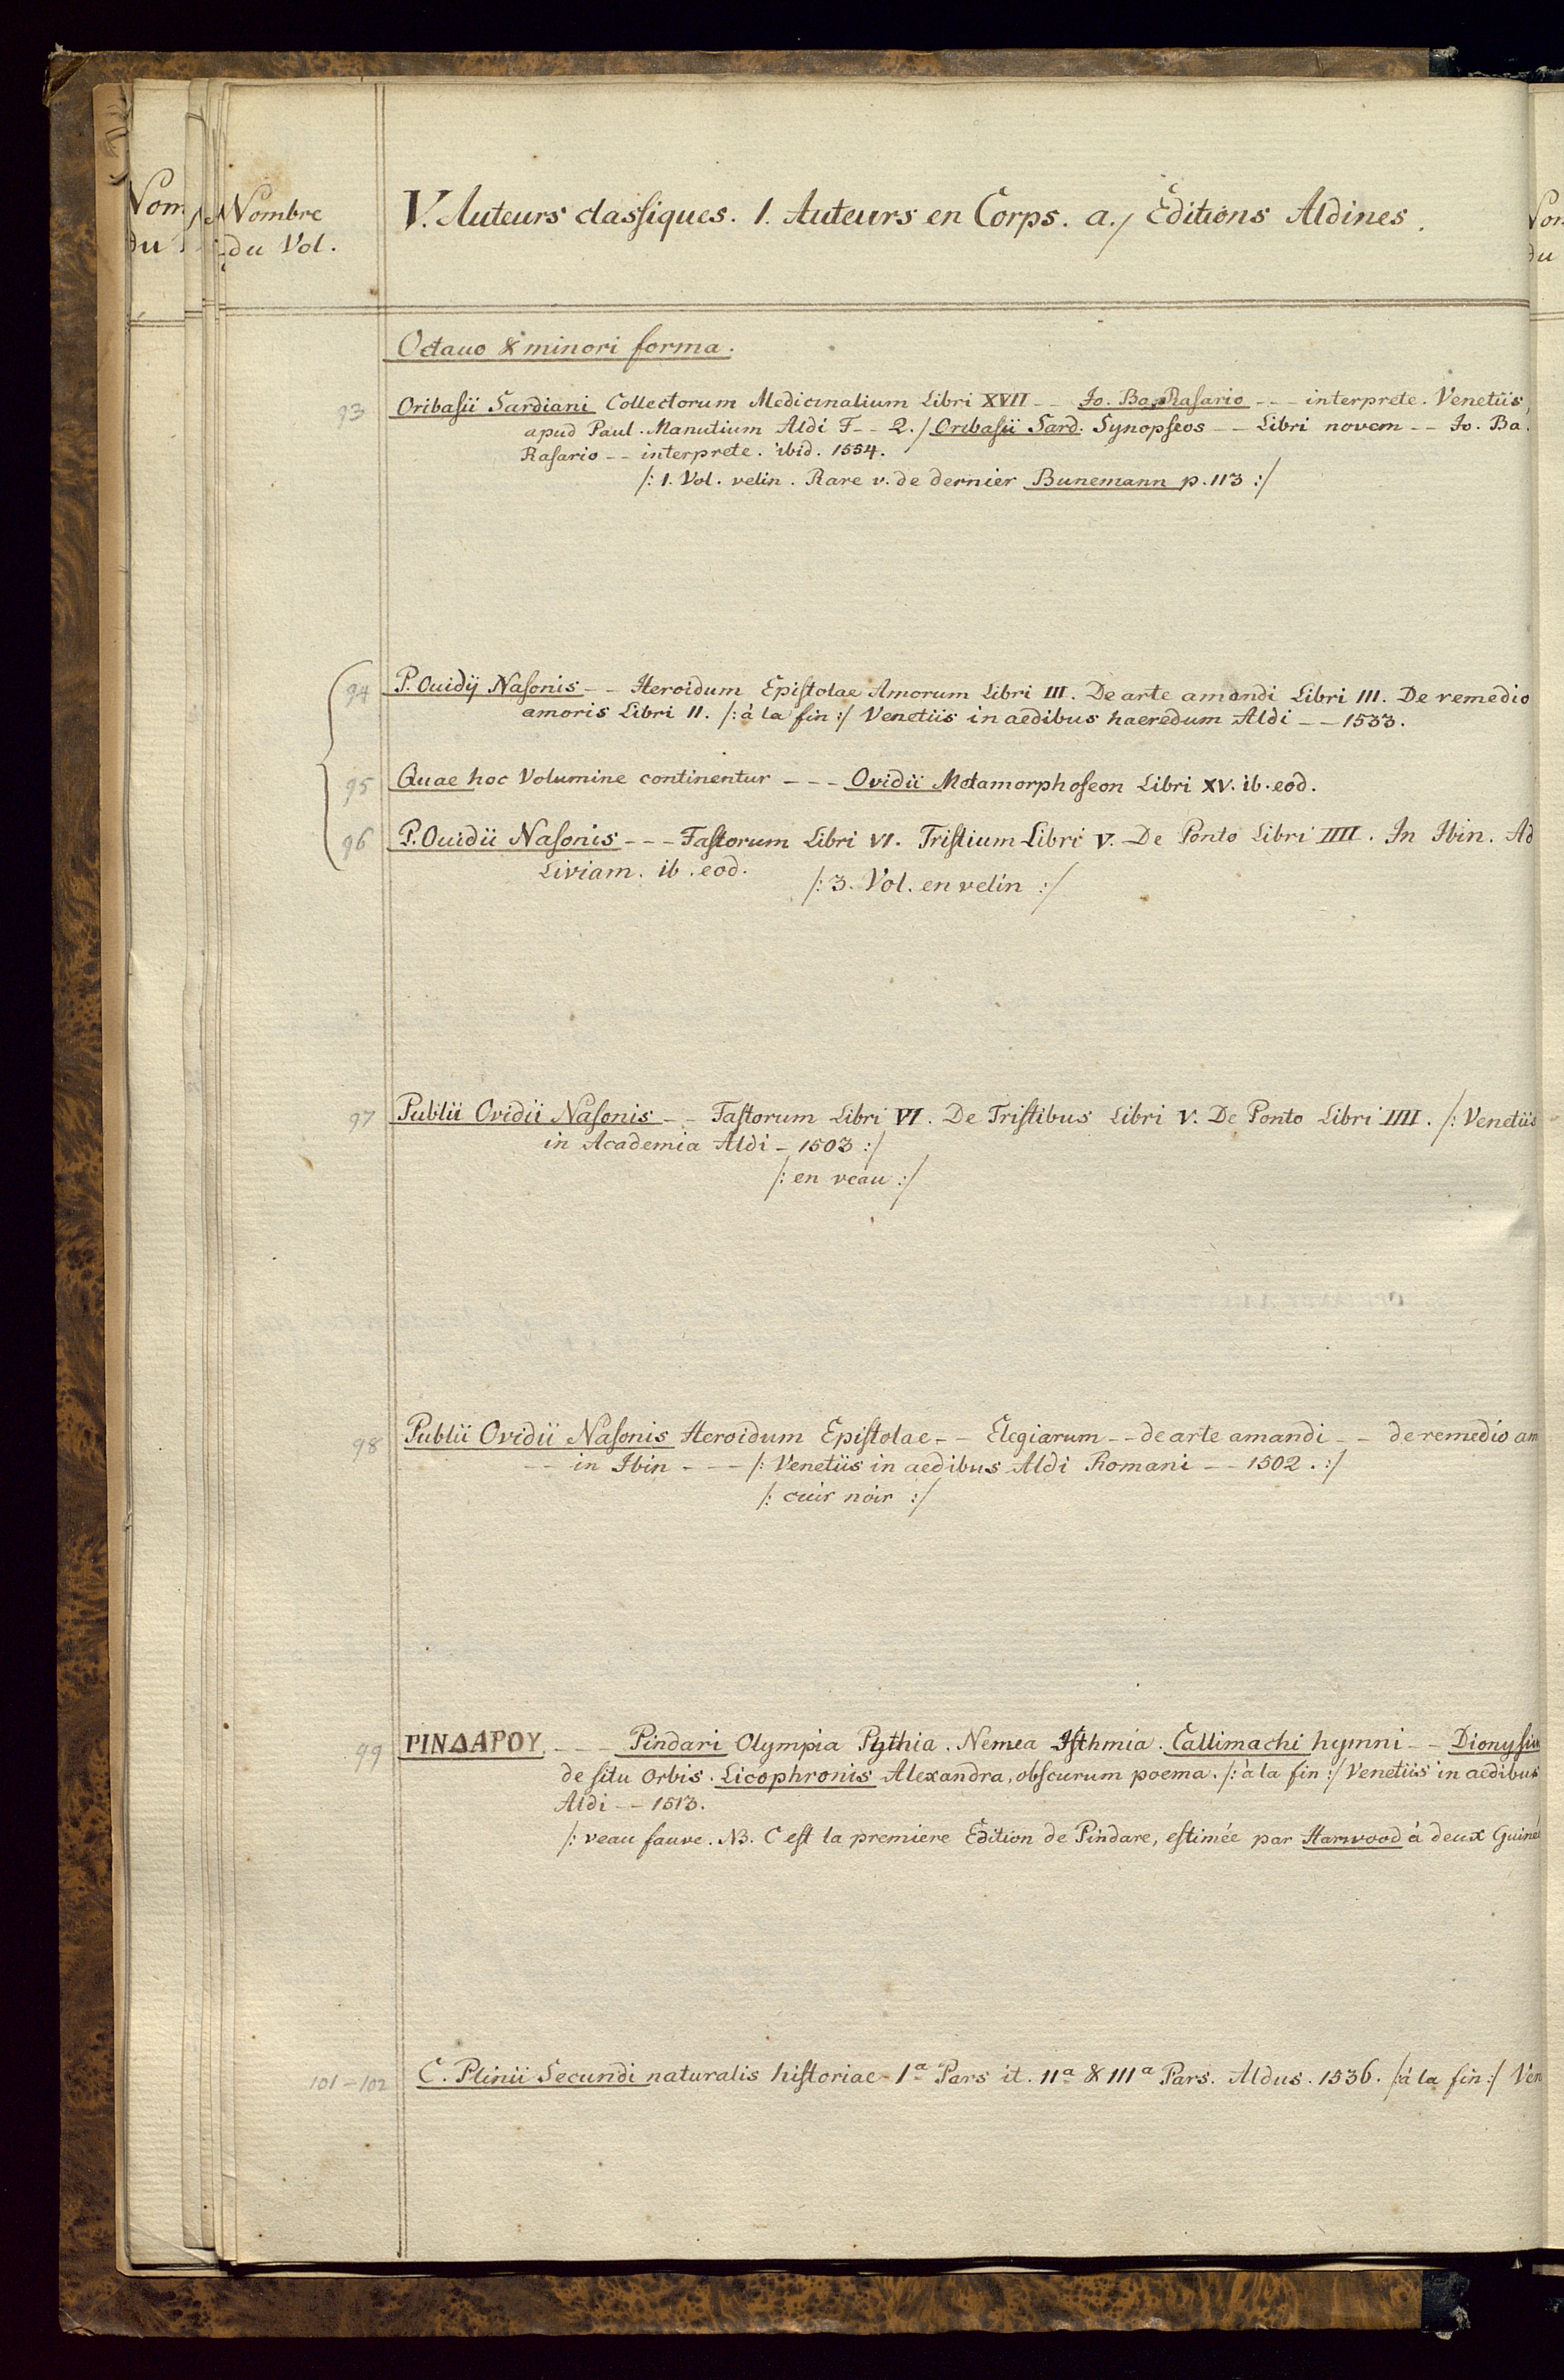 Nombre
du Vol.
V. Auteurs classiques. 1. Auteurs en Corps. a./ Editions Aldines.
Octauo & minori forma.
93 Oribasii Sardiani Collectorum Medicinalium Libri XVII -- Jo. Ba. Rasario --- interprete. Venetiis,
apud Paul. Manutium Aldi F -- 2./ Oribasii Sard. Synopseos -- Libri novem -- Jo. Ba.
Rasario -- interprete. ibid. 1554.
/: 1. Vol. velin. Rare v. de dernier Bunemann p. 113 :/
94 P. Ouidij Nasonis -- Heroidum Epistolae Amorum Libri III. De arte amandi Libri III. De remedio
amoris Libri II. /: à la fin :/ Venetiis in aedibus haeredum Aldi -- 1533.
95 Quae hoc Volumine continentur --- Ovidii Metamorphoseon Libri XV. ib. eod.
96 P. Ouidii Nasonis --- Fastorum Libri VI. Tristium Libri V. De Ponto Libri IIII. In Ibin. Ad
Liviam. ib. eod.
/: 3. Vol. en velin :/
97 Publii Ovidii Nasonis -- Fastorum Libri VI. De Tristibus Libri V. De Ponto Libri IIII. /: Venetiis
in Academia Aldi - 1503 :/
/: en veau :/
98 Publii Ovidii Nasonis Heroidum Epistolae -- Elegiarum -- de arte amandi -- de remedio am
-- in Ibin --- /: Venetiis in aedibus Aldi Romani -- 1502. :/
/: cuir noir :/
99 PINΔAPOY --- Pindari Olympia Pythia. Nemea Isthmia. Callimachi hymni -- Dionysiu
de situ Orbis. Licophronis Alexandra, obscurum poema. /: à la fin :/ Venetiis in aedibus
Aldi -- 1513.
/: veau fauve. NB. C est la premiere Edition de Pindare, estimée par Harwood à deux Guiné
101-102 C. Plinii Secundi naturalis historiae 1a Pars it. 11a & 111a Pars. Aldus. 1536. /: à la fin :/ Ven